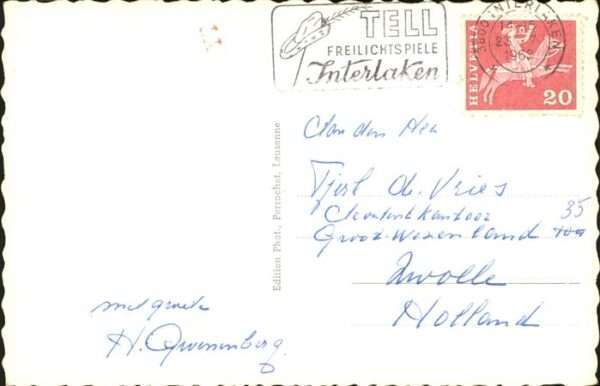 TELL
FREILICHTSPIELE
Interlaken
3800 INTERLAKEN
HELVETIA
20
Edition Phot., Perrochet, Lausanne
Aan den Heer
Tjerk de Vries
35
Groot-Wezenland
Zwolle
Holland
met groeten
H.